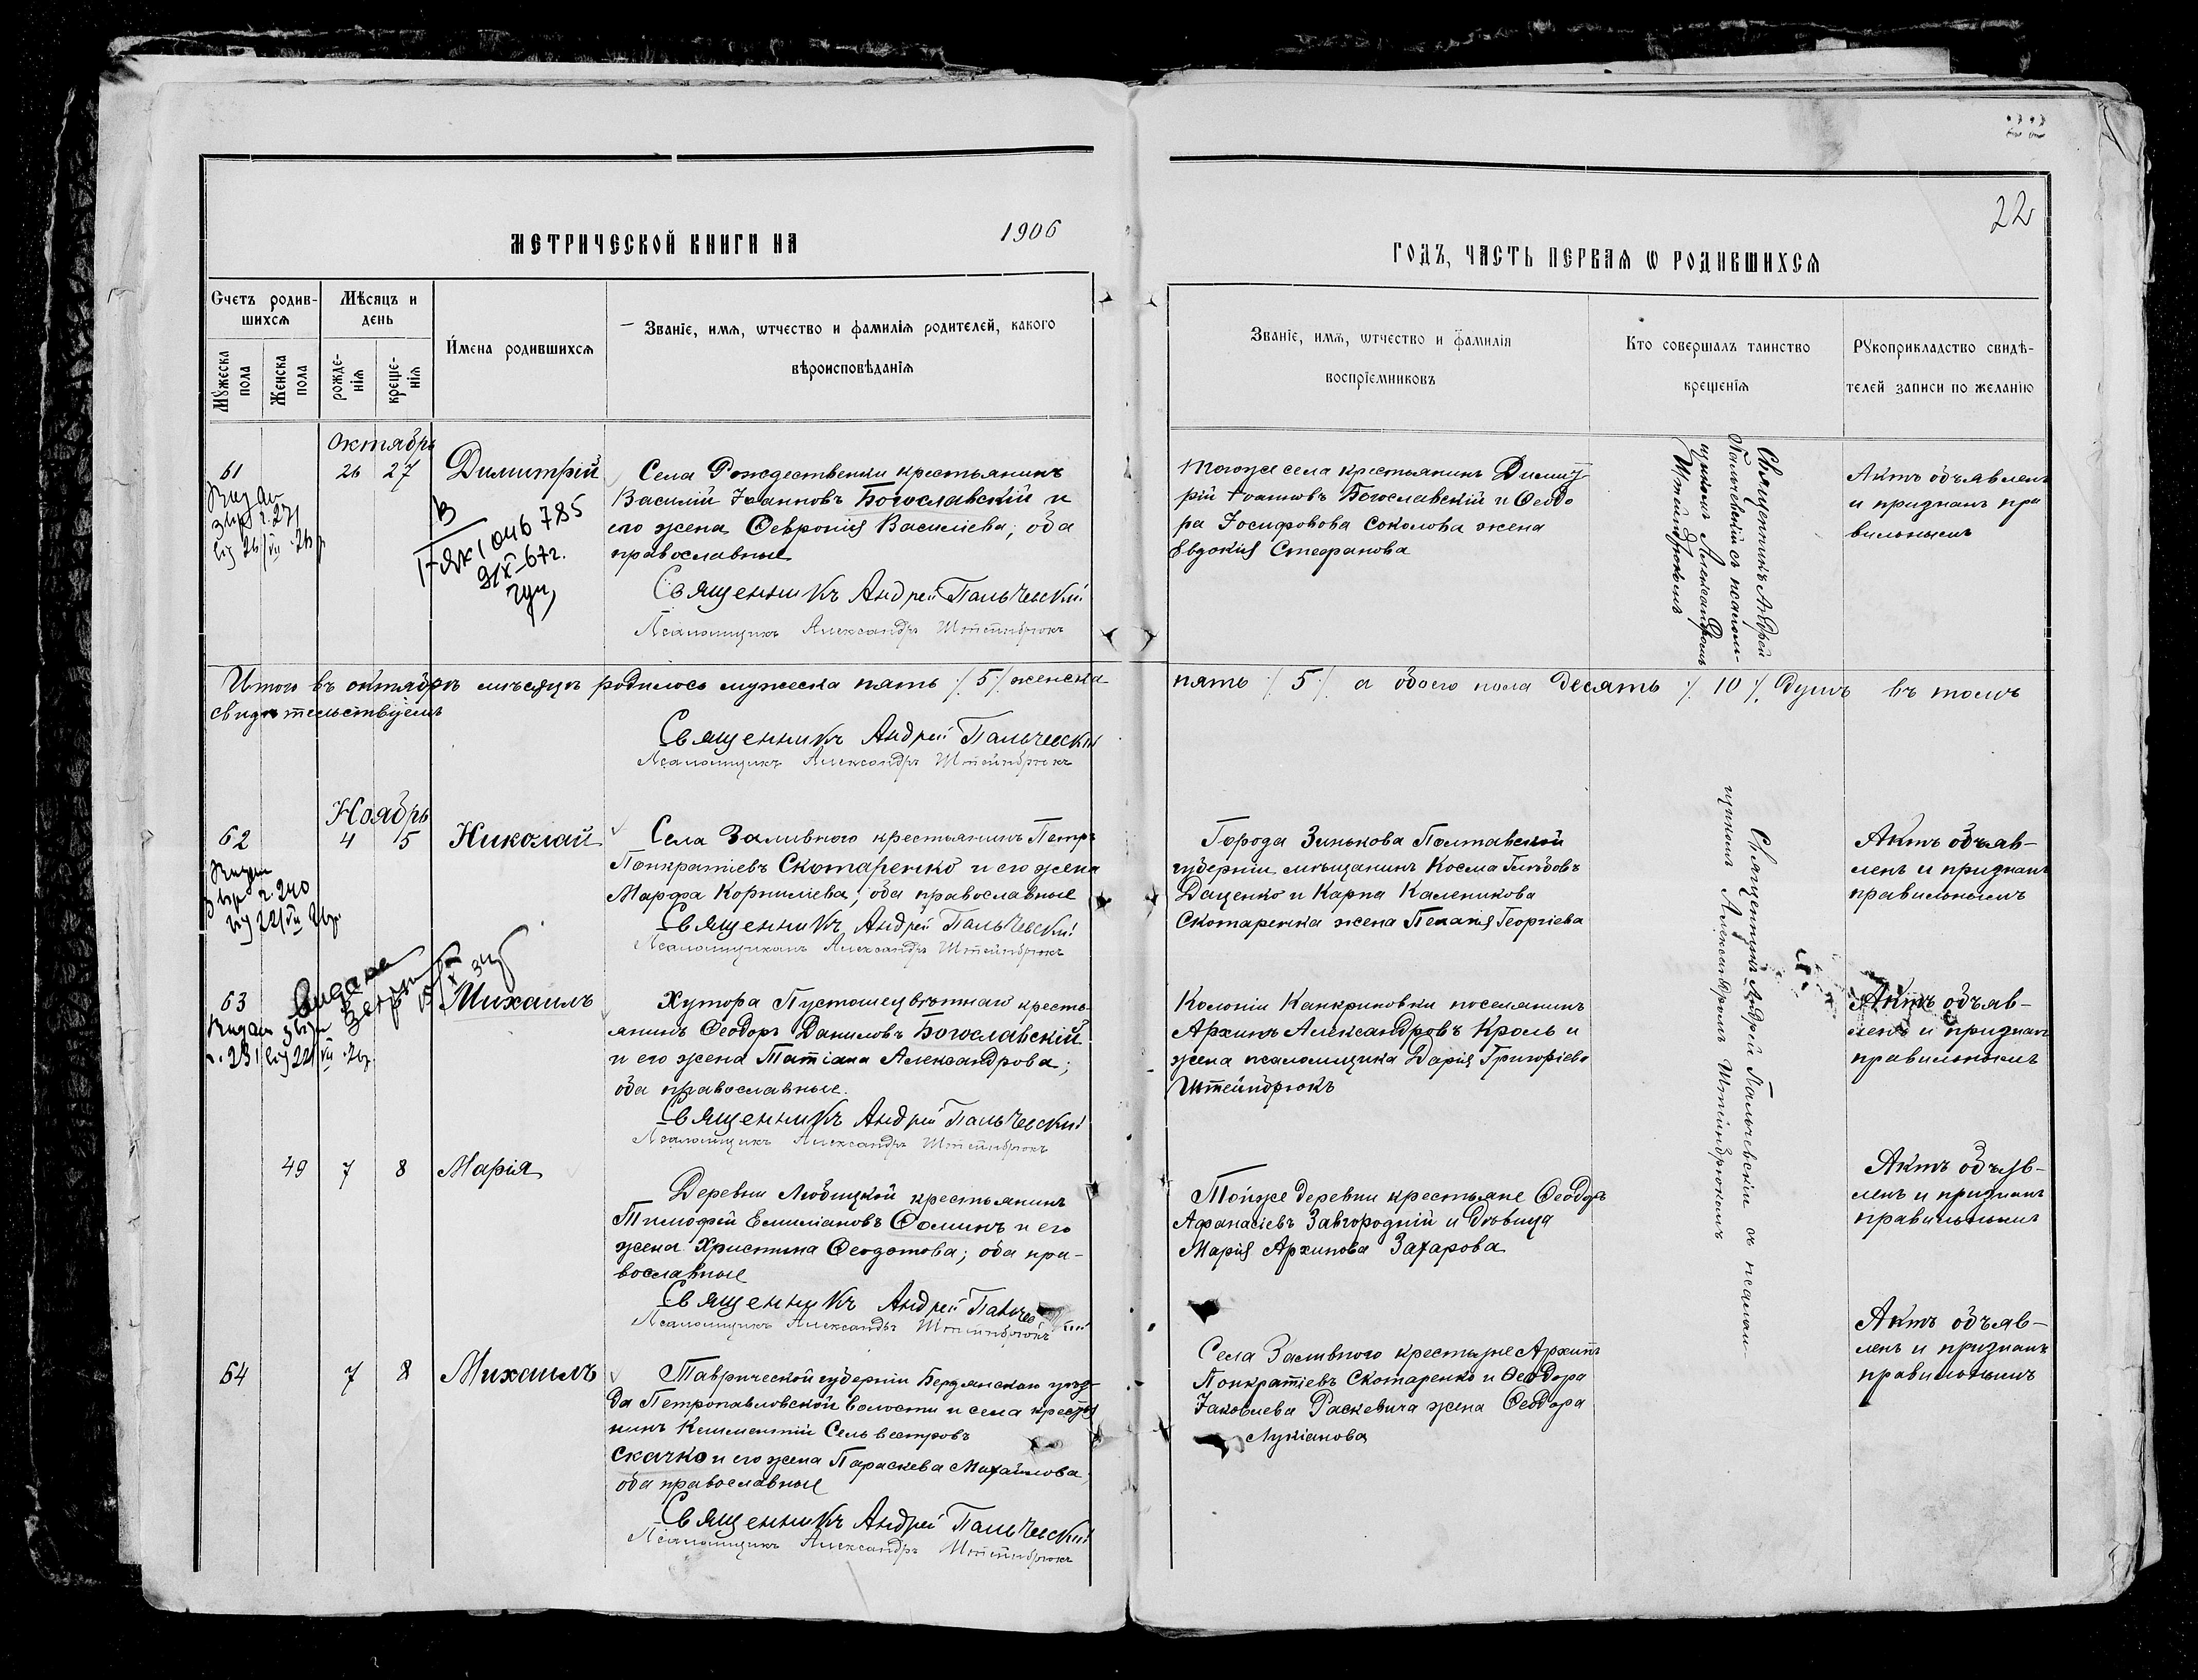 22
МЕТРИЧЕСКОЙ КНИГИ НА 1906
ГОДЪ, ЧАСТЬ ПЕРВАЯ Ѡ РОДИВШИХСЯ
Счетъ родив-
шихся
Мѣсяцъ и
день
Мужеска
пола
Женска
пола
рожде-
нія
креще-
нія
Имена родившихся
Званіе, имя, ѡтчество и фамилія родителей, какого
вѣроисповѣданія
Званіе, имя, ѡтчество и фамилія
воспріемниковъ
Кто совершалъ таинство
крещенія
Рукоприкладство свидѣ-
телей записи по желанію
Октябрь
61 26 27 Димитрій
Села Рождественки крестьянинъ
Василій Іоанновъ Богославскій и
его жена Февронія Василіева; оба
православные
Священникъ Андрей Пальчевскій
Псаломщикъ Александръ Штейнбрюкъ
1046785
Тогоже села крестьянинъ Димит
рій Іоанновъ Богославскій и Феодо
ра Іосифовова Соколова жена
Евдокія Стефанова
Священникъ Андрей
Пальчевскій съ псалом-
щикомъ Александромъ
Штейнбрюкомъ
Актъ объявленъ
и признанъ пра
вильнымъ
Итого въ октябрѣ мѣсяцѣ родилось мужеска пять /5/ женска
пять /5/ а обоего пола десять /10/ душъ въ томъ
свидѣтельствуемъ
Священникъ Андрей Пальчевскій
Псаломщикъ Александръ Штейнбрюкъ
Ноябрь
62 4 5 Николай
Села Заливного крестьянинъ Петръ
Понкратіевъ Скотаренко и его жена
Марфа Корниліева; оба православные
Священникъ Андрей Пальчевскій
Псаломщикомъ Александръ Штейнбрюкъ
Города Зинькова Полтавской
губерніи мѣщанинъ Косма Глѣбовъ
Даценко и Карпа Каленикова
Скотаренка жена Пелагія Георгіева
Актъ объяв-
ленъ и признанъ
правильнымъ
63 Михаилъ
Хутора Пустошецвѣтная кресть-
янинъ Феодоръ Даниловъ Богославскій
и его жена Татіана Александрова;
оба православные.
Священникъ Андрей Пальчевскій
Псаломщикъ Александръ Штейнбрюкъ
Колоніи Канкриновки поселянинъ
Архипъ Александровъ Кроль и
жена псаломщика Дарія Григоріева
Штейнбрюкъ
Актъ объяв-
ленъ и признанъ
правильнымъ
49 7 8 Марія
Деревни Любицкой крестьянинъ
Тимофей Емиліановъ Фоминъ и его
жена Христина Феодотова; оба пра-
вославные
Священникъ Андрей Пальчевскій
Псаломщикъ Александръ Штейнбрюкъ
Тойже деревни крестьяне Феодоръ
Афанасіевъ Завгородній и дѣвица
Марія Архипова Захарова
Актъ объяв-
ленъ и признанъ
правильнымъ
64 7 8 Михаилъ
Таврической губерніи Бердянскаго уѣз-
да Петропавловской волости и села крестья
нинъ Климентій Сельвестровъ
Скачко и его жена Параскева Михайлова
оба православные
Священникъ Андрей Пальчевскій
Псаломщикъ Александръ Штейнбрюкъ
Села Заливного крестьяне Архипъ
Понкратіевъ Скотаренко и Феодора
Іаковлева Раскевича жена Феодора
Лукіанова
Актъ объяв-
ленъ и признанъ
правильнымъ
Священникъ Андрей Пальчевскій съ псалом-
щикомъ Александромъ Штейнбрюкомъ